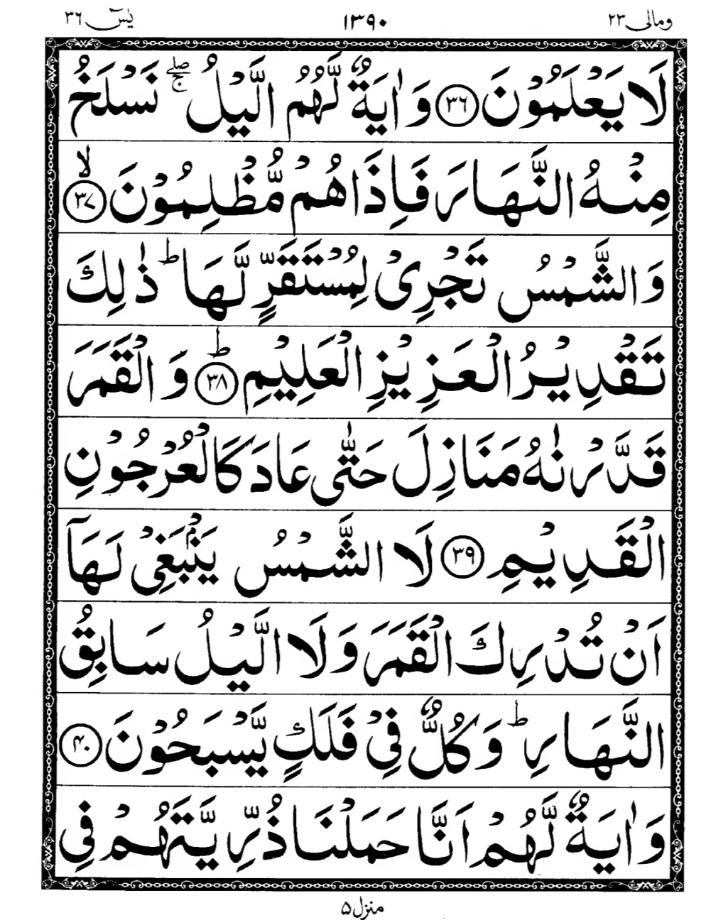 یٰسٓ ۳۶ ۱۳۹۰ ومالی ۲۳
لَا يَعْلَمُوْنَ ﴿۳۶﴾ وَاٰيَةٌ لَّهُمُ الَّيْلُ ۖۚ نَسْلَخُ
مِنْهُ النَّهَارَ فَاِذَا هُمْ مُّظْلِمُوْنَ ﴿۳۷﴾ ۙ
وَالشَّمْسُ تَجْرِىْ لِمُسْتَقَرٍّ لَّهَا ؕ ذٰلِكَ
تَقْدِيْرُ الْعَزِيْزِ الْعَلِيْمِ ﴿۳۸﴾ ؕ وَالْقَمَرَ
قَدَّرْنٰهُ مَنَازِلَ حَتّٰى عَادَ كَالْعُرْجُوْنِ
الْقَدِيْمِ ﴿۳۹﴾ لَا الشَّمْسُ يَنْۢبَغِىْ لَهَاۤ
اَنْ تُدْرِكَ الْقَمَرَ وَلَا الَّيْلُ سَابِقُ
النَّهَارِ ؕ وَكُلٌّ فِىْ فَلَكٍ يَّسْبَحُوْنَ ﴿۴۰﴾
وَاٰيَةٌ لَّهُمْ اَنَّا حَمَلْنَا ذُرِّيَّتَهُمْ فِى
منزل ۵